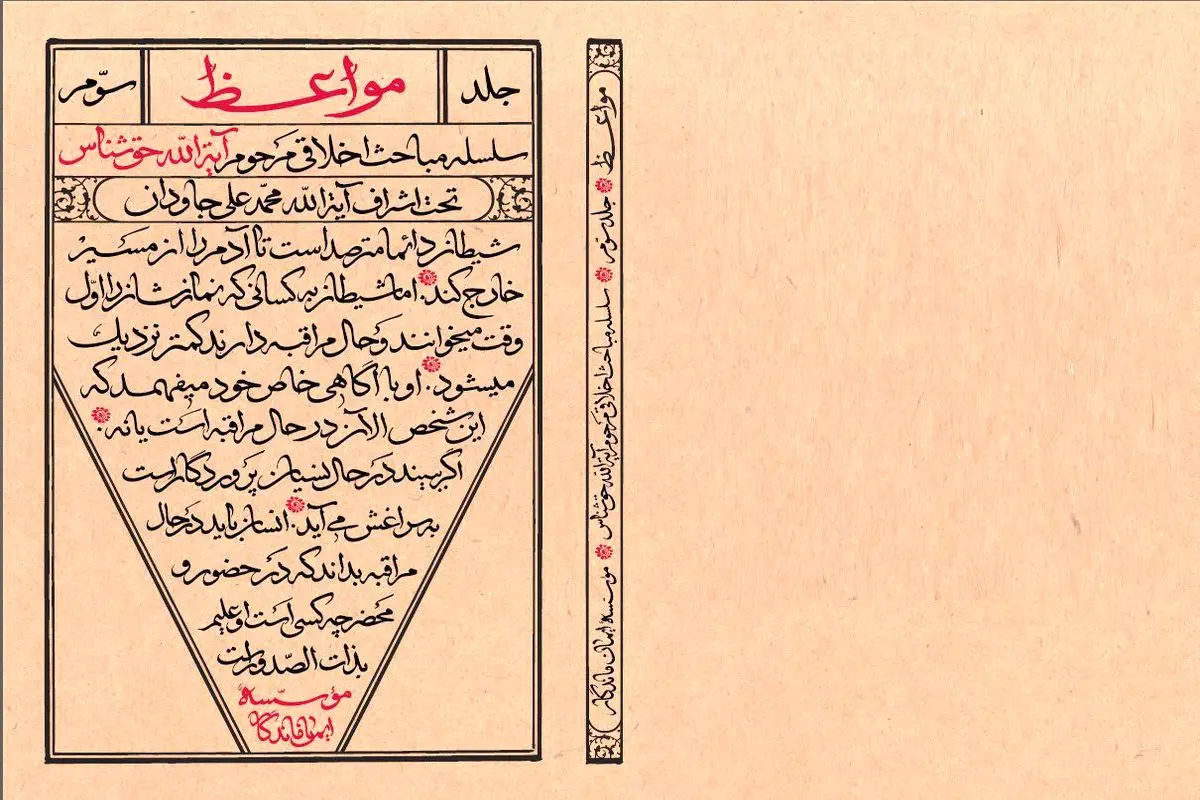 جلد مواعظ سوّم
سلسله مباحث اخلاقی مرحوم آیة الله حق‌شناس
تحت اشراف آیة الله محمّد علی جاودان
شیطان دائما مترصد است تا آدم را از مسیر
خارج کند. اما شیطان به کسانی که نمازشان را اوّل
وقت میخوانند و حال مراقبه دارند کمتر نزدیک
میشود. او با آگاهی خاص خود میفهمد که
این شخص الان در حال مراقبه است یا نه.
اگر ببیند در حال نسیان پروردگار است
به سراغش می آید. انسان باید در حال
مراقبه بداند که در حضور و
محضر چه کسی است او علیم
بذات الصّدور است
مؤسّسه
ایمان ماندگار
مواعظ جلد سوّم سلسله مباحث اخلاقی مرحوم آیة الله حق‌شناس مؤسسه ایمان ماندگار